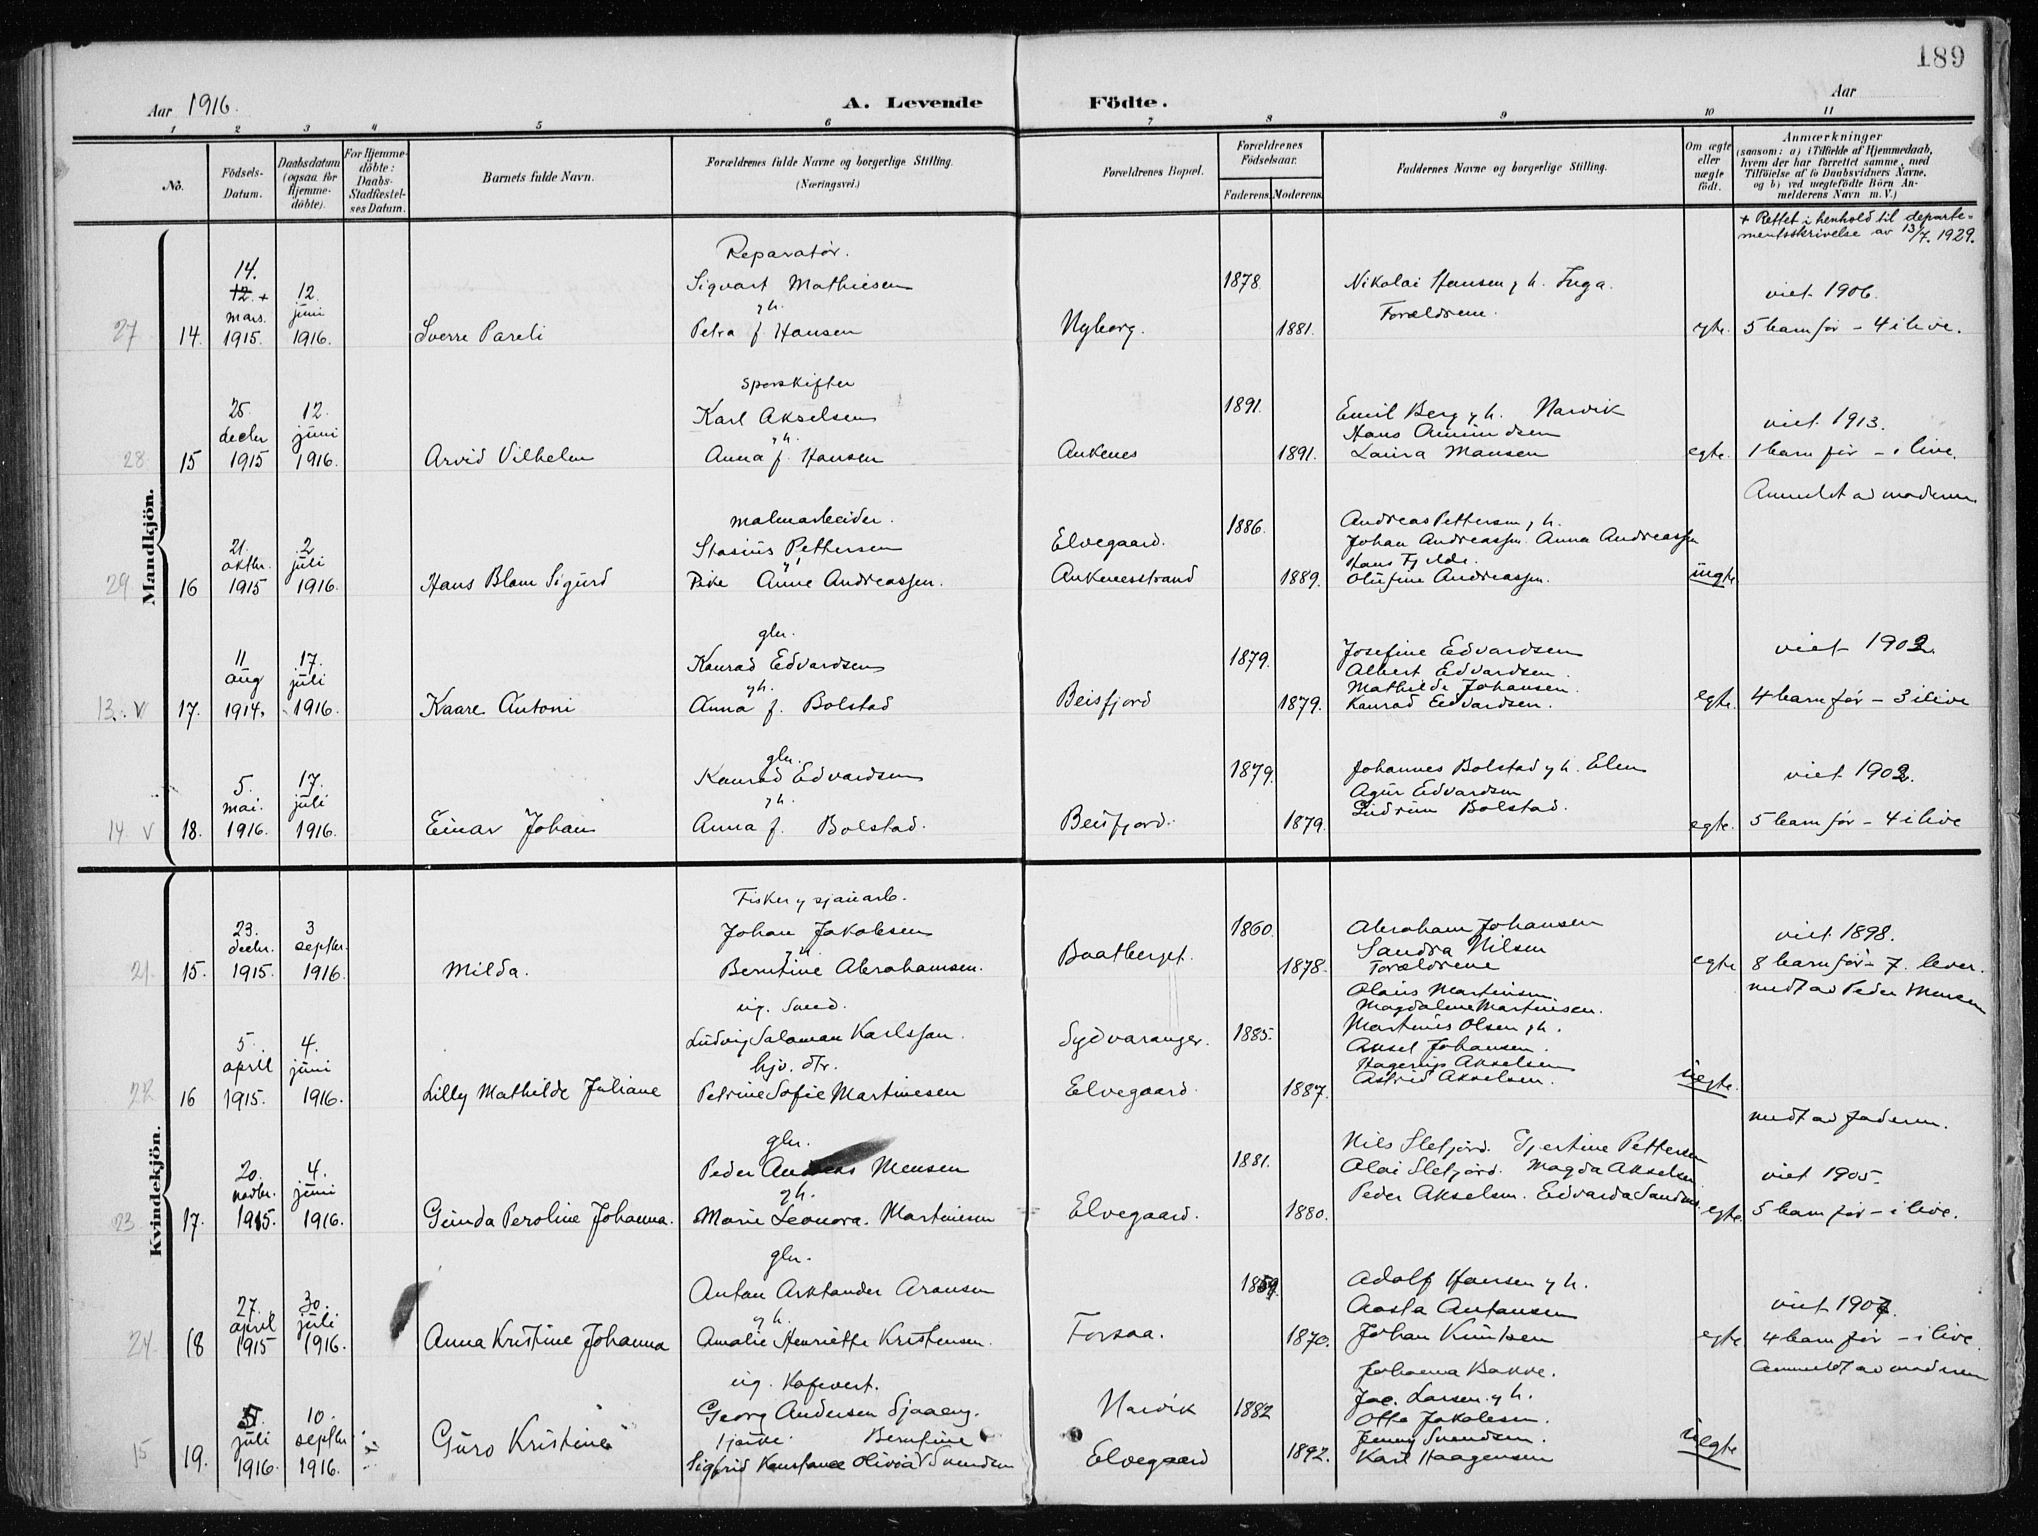 189
Aar 1916.
A. Levende Födte.
Aar
1 2 3 4 5 6 7 8 9 10 11
No.
Födsels-Datum.
Daabsdatum (ogsaa for Hjemme-döbte).
For Hjemme-döbte: Daabs-Stadfæstel-ses Datum.
Barnets fulde Navn.
Forældrenes fulde Navne og borgerlige Stilling. (Næringsvei.)
Forældrenes Bopæl.
Forældrenes Födselsaar.
Faderens. Moderens.
Faddernes Navne og borgerlige Stilling.
Om ægte eller uægte födt.
Anmærkninger (saasom: a) i Tilfælde af Hjemmedaab, hvem der har forrettet samme, med Tilföielse af to Daabsvidners Navne, og b) ved uægtefödte Börn An-melderens Navn m. V.)
+ Rettet i henhold til departe-
mentsskrivelse av 13/7. 1929.
Mandkjön.
Reparatør.
14.
12. + 12. Sigvart Mathiesen 1878. Nikolai Hansen y h. Inga. viet 1906.
mars. juni y h. Forældrene.
27 14. 1915. 1916. Sverre Pareli Petra f. Hansen Nyborg. 1881. egte. 5 barn før - 4 i live.
sporskifter
25. 12. Karl Akselsen 1891. Emil Berg y h. Narvik viet 1913.
decbr juni y h. Hans Amundsen
28. 15 1915 1916. Arvid Vilhelm Anna f. Hansen Ankenes 1891. Laura Mansen egte. 1 barn før - i live.
Anmeldt av moderen
malmarbeider. 1886. Andreas Pettersen y h.
21. 2 Stasius Pettersen Elvegaard. Johan Andreassen. Anna Andreassen
oktbr. juli y Hans Fjelde.
29 16 1915 1916. Hans Blom Sigurd Pike Anne Andreassen. Ankenesstrand 1889. Olufine Andreassen. uegte
gbr.
11 17. Konrad Edvardsen 1879. Josefine Edvardsen viet 1902.
aug juli y h. Albert Edvardsen.
Mathilde Johansen.
13. v 17. 1914. 1916. Kaare Antoni Anna f. Bolstad Beisfjord 1879. Konrad Edvardsen. egte. 4 barn før - 3 i live
gbr.
5. 17. Konrad Edvardsen 1879. Johannes Bolstad y h. Elen viet 1902.
mai. juli y h. Agur Edvardsen
14. v 18. 1916. 1916. Einar Johan Anna f. Bolstad. Beisfjord. 1879. Gudrun Bolstad. egte. 5 barn før - 4 i live
Kvindekjön.
Fisker y sjauarb.
23. 3 Johan Jakobsen 1860. Abraham Johansen viet 1898.
decbr. septbr. y h. Sandra Nilsen
21. 15. 1915. 1916. Milda. Berntine Abrahamsen. Baatberget. 1878. Forældrene egte 8 barn før - 7. lever.
ug. Svend. Olaus Martinsen. medt av Peder Mensen
Magdalene Martinsen.
5. 4. Ludvig Salamon Karlssjon. Sydvaranger. 1885. Martinus Olsen y h.
april juni hjv. dtr. Aksel Johansen.
Hagerup Akselsen
22 16 1915. 1916. Lilly Mathilde Juliane Petrine Sofie Martinesen Elvegaard. 1887. Astrid Akselsen. uegte.
medt av faderen.
gbr. Nils Slefjord. Hjertine Pettersen
20. 4. Peder Andreas Mensen 1881. Olai Slefjord. Magda Akselsen viet 1905.
novbr. juni y h. Peder Akselsen. Edvarda
23 17. 1915. 1916. Gunda Peroline Johanna. Marie Leonora. Martinesen Elvegaard. 1880. egte. 5 barn før - i live.
gbr.
27. 30. Anton Arktander Aronsen 1859. Adolf Hansen y h. viet 1907
april juli y h. Aasta Antonsen
24. 18 1915 1916. Anna Kristine Johanna Amalie Henriette Kristensen. Forsaa. 1870. Johan Knutsen egte. 4 barn før - i live
ug. Kafevert. Johanna Bakke. anmeldt av moderen
31. 10. Georg Andersen Sjaaeng. Narvik 1882 Jac. Larsen y h.
juli septbr. Berntine Otto Jakobsen.
Jenny Svendsen.
15 19. 1916. 1916. Guro Kristine Sigfrid Konstance Olivia Svendsen Elvegaard 1892. Karl Haagensen uegte